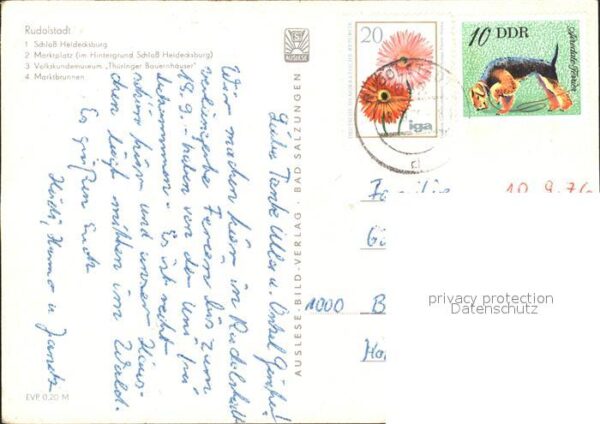 Rudolstadt
1 Schloß Heidecksburg
2 Marktplatz (im Hintergrund Schloß Heidecksburg)
3 Volkskundemuseum „Thüringer Bauernhäuser"
4 Marktbrunnen
AUSLESE
20
iga
10 DDR
Airedale-Terrier
Liebe Tante Ulla u. Onkel Günther!
Wir machen hier in Rudolstadt
Ferien bis zum
18.9. haben von der Uni frei
bekommen. Es ist recht
schön hier und unser Häus-
chen liegt mitten im Wald.
Es grüßen Euch
Heidi, u. Janett
AUSLESE-BILD-VERLAG · BAD SALZUNGEN
Familie
10.9.76
1000 B
EVP 0,20 M
privacy protection
Datenschutz